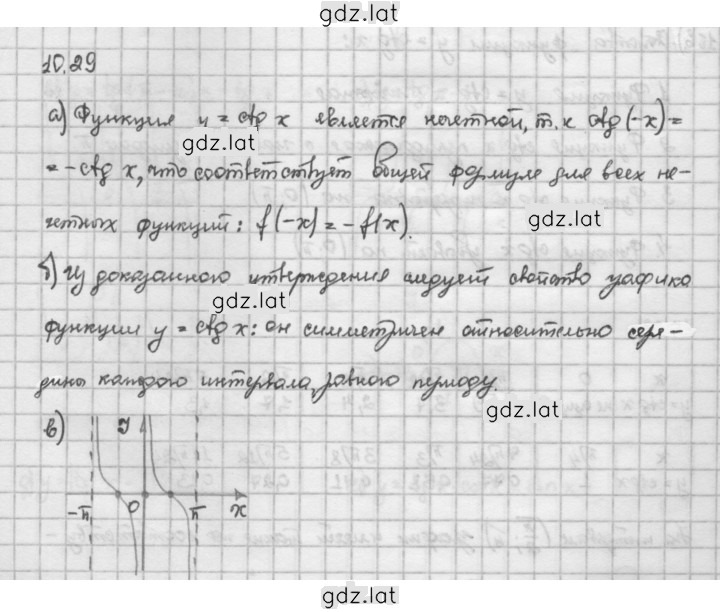 gdz.lat
10.29
а) Функция y = ctg x является нечетной, т.к ctg(-x)=
gdz.lat
= -ctg x, что соответствует общей формуле для всех не-
четных функций: f(-x) = -f(x).
gdz.lat
б) Из доказанного утверждения следует свойство графика
gdz.lat
функции y = ctg x: он симметричен относительно сере-
дины каждого интервала, равного периоду.
gdz.lat
в)
y
-π 0 π x
gdz.lat